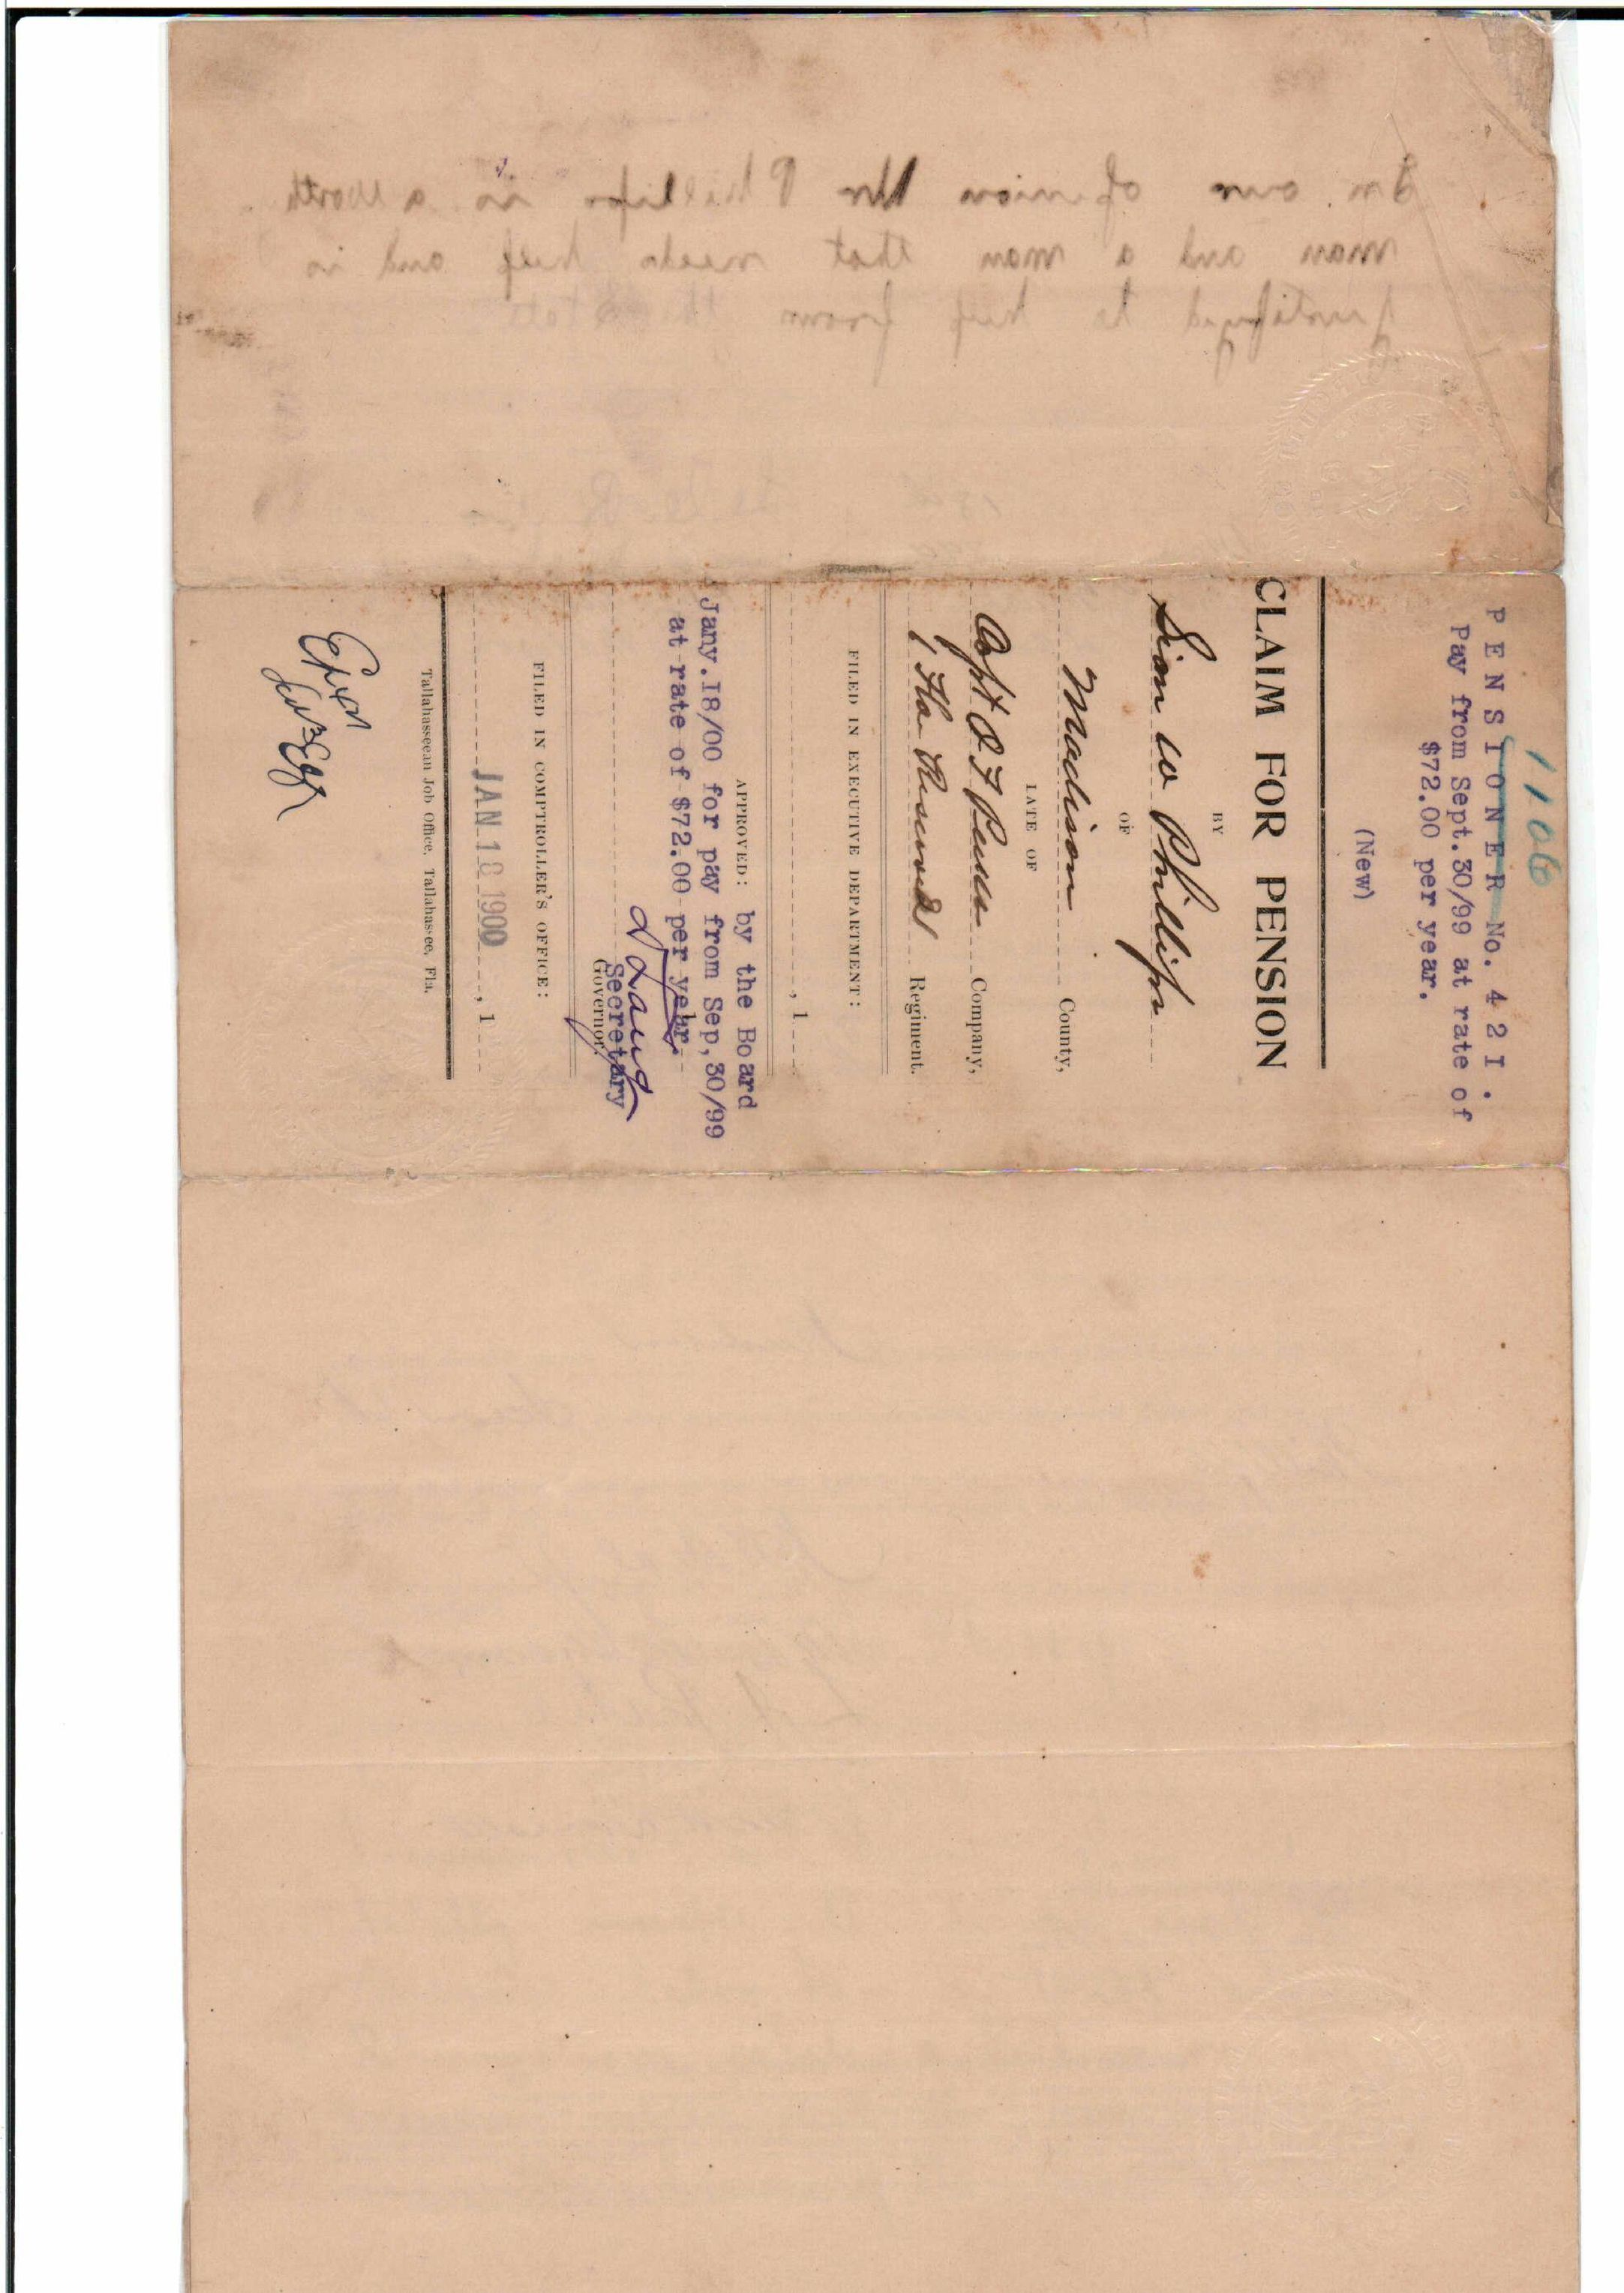 In our opinion Mr Phillips is a worth
man and a man that needs help and is
Justifyed to help from the State
11066
PENSIONER No. 421.
Pay from Sept.30/99 at rate of
$72.00 per year.
(New)
CLAIM FOR PENSION
BY
Sion W Phillips
OF
Madison County,
LATE OF
Capt Company,
1 Fla Reserves Regiment.
FILED IN EXECUTIVE DEPARTMENT:
, 1
APPROVED: by the Board
Jany.18/00 for pay from Sep,30/99
at rate of $72.00 per year
D Lang
Secretary
Governor.
FILED IN COMPTROLLER'S OFFICE:
JAN 18 1900 , 1
Tallahasseean Job Office, Tallahassee, Fla.